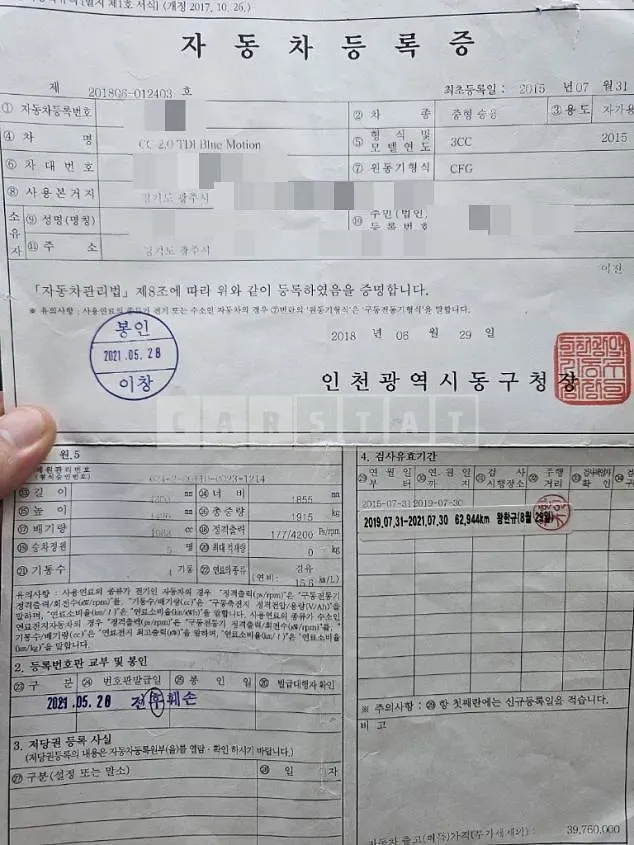 제1호 서식] (개정 2017. 10. 26.)
자동차등록증
제 201806-012403 호
최초등록일 : 2015 년 07 월 31
① 자동차등록번호
② 차 종 중형 승용
③ 용도 자가용
④ 차 명 CC 2.0 TDI Blue Motion
⑤ 형식 및 모델연도 3CC 2015
⑥ 차대번호
⑦ 원동기형식 CFG
⑧ 사용본거지 경기도 광주시
소유자
⑨ 성명(명칭)
⑩ 주민(법인) 등록번호
⑪ 주 소 경기도 광주시
이전
「자동차관리법」 제8조에 따라 위와 같이 등록하였음을 증명합니다.
※ 유의사항 : 사용연료의 종류가 전기 또는 수소인 자동차의 경우 ⑦번란의 '원동기형식'은 '구동전동기형식'을 말합니다.
2018 년 06 월 29 일
봉인
2021.05.28
이창
인천광역시동구청장
CARSTAT
원.5
제원관리번호
(형식승인번호)
⑬ 길 이 mm
⑭ 너 비 1855 mm
⑮ 높 이 mm
⑯ 총중량 1915 kg
⑰ 배기량 cc
⑱ 정격출력 177/4200 Ps/rpm
⑲ 승차정원 5 명
⑳ 최대적재량 0 kg
㉑ 기통수 4 기통
㉒ 연료의종류 경유
(연비: 15.6 km/L)
유의사항 : 사용연료의 종류가 전기인 자동차의 경우 "정격출력(ps/rpm)"은 "구동전동기
정격출력/회전수(kW/rpm)"를, "기통수/배기량(cc)"은 "구동축전지 정격전압/용량(V/Ah)"을
말하며, "연료소비율(km/ℓ)"은 "연료소비율(km/kWh)"을 말합니다. 사용연료의 종류가 수소인
연료전지자동차의 경우 "정격출력(ps/rpm)"은 "구동전동기 정격출력/회전수(kW/rpm)"를, "
기통수/배기량(cc)"은 "연료전지 최고출력(kW)"을 말하며, "연료소비율(km/ℓ)"은 "연료소비율
(km/kg)"을 말합니다.
2. 등록번호판 교부 및 봉인
㉓ 구 분
㉔ 번호판발급일
㉕ 봉 인 일
㉖ 발급대행자확인
2021.05.28 전후훼손
3. 저당권 등록 사실
(저당권등록의 내용은 자동차등록원부(을)를 열람·확인 하시기 바랍니다.)
㉗ 구분(설정 또는 말소)
㉘ 일 자
4. 검사유효기간
㉙ 연월일 부터
㉚ 연월일 까지
㉛ 검사 시행장소
㉜ 주행 거리
㉝ 검사책임자 확인
2015-07-31 2019-07-30
2019.07.31~2021.07.30 62,944km 황한규(8월 29일)
※ 주의사항 : ㉙ 항 첫째란에는 신규등록일을 적습니다.
비 고
자동차 출고(취득)가격(부가세 제외) : 39,760,000